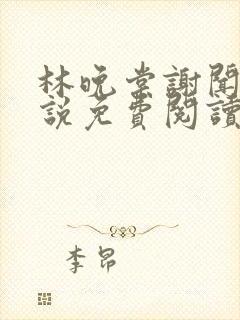 林晚棠謝聞
說免費閱讀
李昂